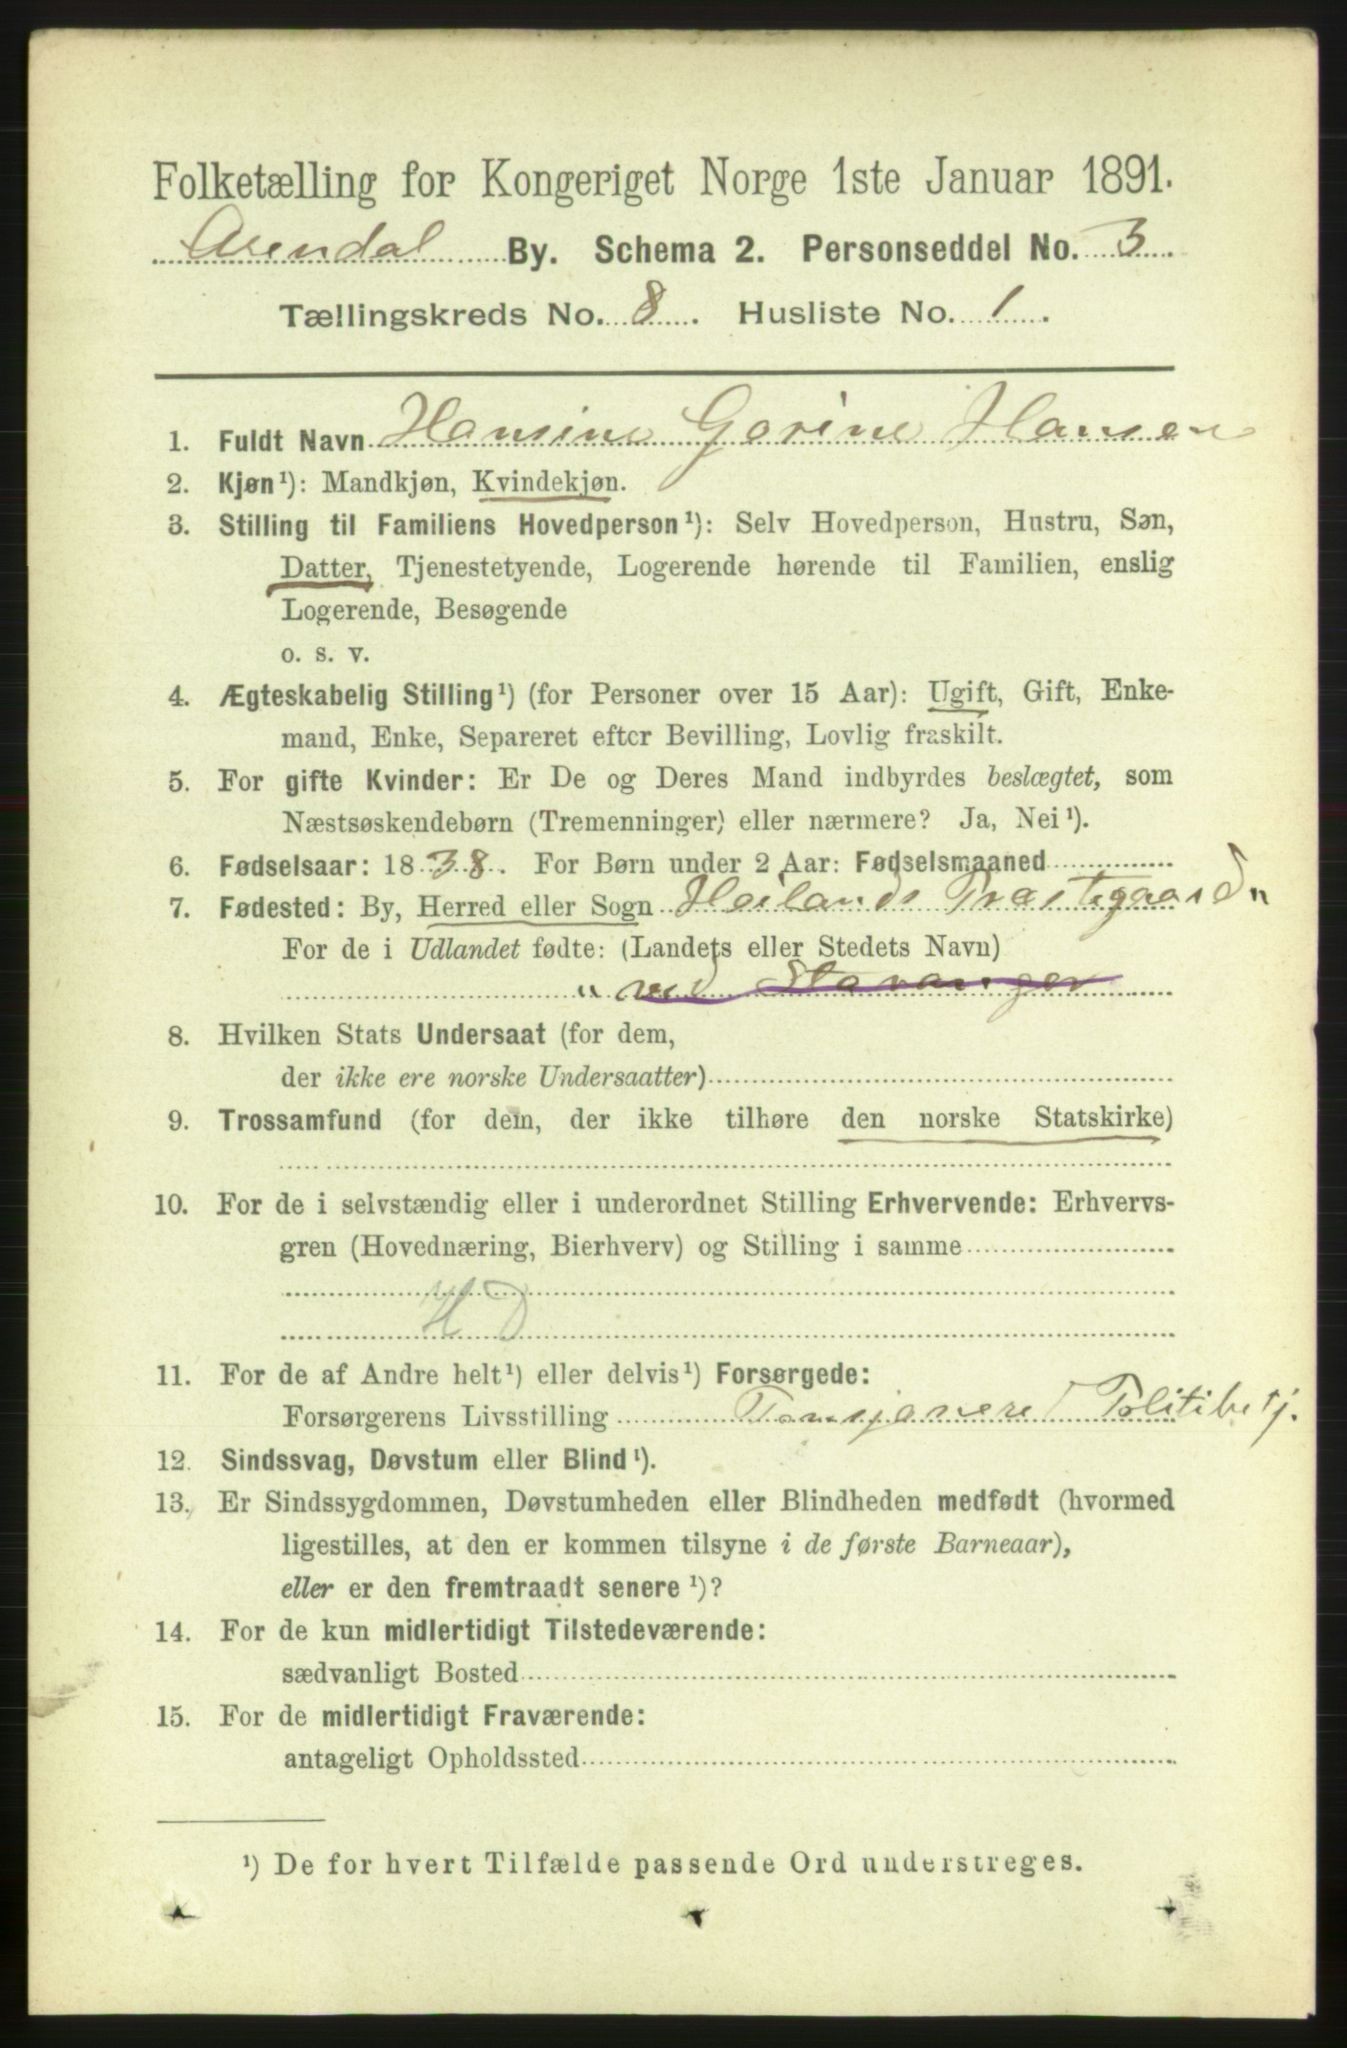 Folketælling for Kongeriget Norge 1ste Januar 1891.
Arendal By. Schema 2. Personseddel No. 3.
Tællingskreds No. 8. Husliste No. 1.
1. Fuldt Navn Hansine Gorine Hansen
2. Kjøn¹): Mandkjøn, Kvindekjøn.
3. Stilling til Familiens Hovedperson¹): Selv Hovedperson, Hustru, Søn,
Datter, Tjenestetyende, Logerende hørende til Familien, enslig
Logerende, Besøgende
o. s. v.
4. Ægteskabelig Stilling¹) (for Personer over 15 Aar): Ugift, Gift, Enke-
mand, Enke, Separeret efter Bevilling, Lovlig fraskilt.
5. For gifte Kvinder: Er De og Deres Mand indbyrdes beslægtet, som
Næstsøskendebørn (Tremenninger) eller nærmere? Ja, Nei¹).
6. Fødselsaar: 1838. For Børn under 2 Aar: Fødselsmaaned
7. Fødested: By, Herred eller Sogn Heilands Præstegaard "
For de i Udlandet fødte: (Landets eller Stedets Navn)
" ved Stavanger
8. Hvilken Stats Undersaat (for dem,
der ikke ere norske Undersaatter)
9. Trossamfund (for dem, der ikke tilhøre den norske Statskirke)
10. For de i selvstændig eller i underordnet Stilling Erhvervende: Erhvervs-
gren (Hovednæring, Bierhverv) og Stilling i samme
H D
11. For de af Andre helt¹) eller delvis¹) Forsørgede:
Forsørgerens Livsstilling Pensjonere Politibetj.
12. Sindssvag, Døvstum eller Blind¹).
13. Er Sindssygdommen, Døvstumheden eller Blindheden medfødt (hvormed
ligestilles, at den er kommen tilsyne i de første Barneaar),
eller er den fremtraadt senere¹)?
14. For de kun midlertidigt Tilstedeværende:
sædvanligt Bosted
15. For de midlertidigt Fraværende:
antageligt Opholdssted
¹) De for hvert Tilfælde passende Ord understreges.